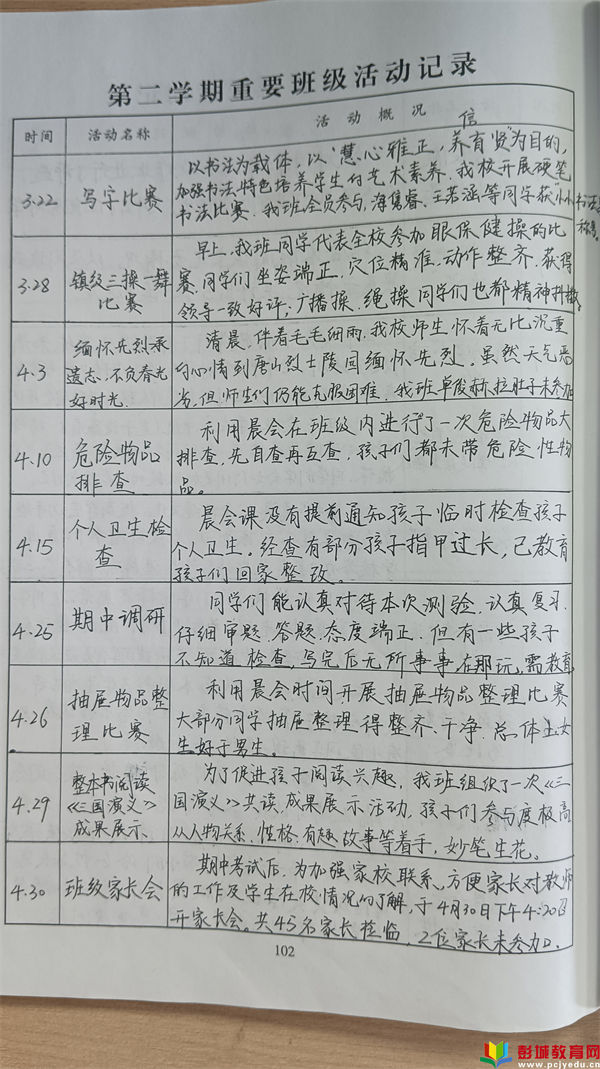 第二学期重要班级活动记录
时间 活动名称 活动概况
信
3.22 写字比赛
以书法为载体，以"慧心雅正，养育贤"为目的，
加强书法特色培养学生的艺术素养。我校开展硬笔
书法比赛，我班全员参与，海隽睿、王若涵等同学获"小小书法家
称号。
3.28 镇级三操一舞
比赛
早上，我班同学代表全校参加眼保健操的比
赛，同学们坐姿端正，穴位精准，动作整齐，获得
领导一致好评；广播操、绳操同学们也都精神抖擞。
4.3 缅怀先烈承
遗志，不负春光
好时光.
清晨，伴着毛毛细雨，我校师生怀着无比沉重
的心情到唐山烈士陵园缅怀先烈，虽然天气恶
劣，但师生们仍能克服困难，我班单俊赫拉肚子未参加
4.10 危险物品
排查
利用晨会在班级内进行了一次危险物品大
排查，先自查再互查，孩子们都未带危险性物
品。
4.15 个人卫生检
查
晨会课没有提前通知孩子临时检查孩子
个人卫生。经查有部分孩子指甲过长，已教育
孩子们回家整改。
4.25 期中调研
同学们能认真对待本次测验，认真复习.
仔细审题、答题，态度端正，但有一些孩子
不知道检查，写完后无所事事，在那玩，需教育
4.26 抽屉物品整
理比赛
利用晨会时间开展抽屉物品整理比赛
大部分同学抽屉整理得整齐、干净，总体上女
生好于男生。
4.29 整本书阅读
《三国演义》
成果展示.
为了促进孩子阅读兴趣，我班组织了一次《三
国演义》共读成果展示活动，孩子们参与度极高
从人物关系、性格、有趣故事等着手，妙笔生花。
4.30 班级家长会
期中考试后，为加强家校联系，方便家长对教师
的工作及学生在校情况的了解，于4月30日下午4:20召
开家长会。共45名家长莅临，2位家长未参加。
102
彭城教育网
www.pcjyedu.cn